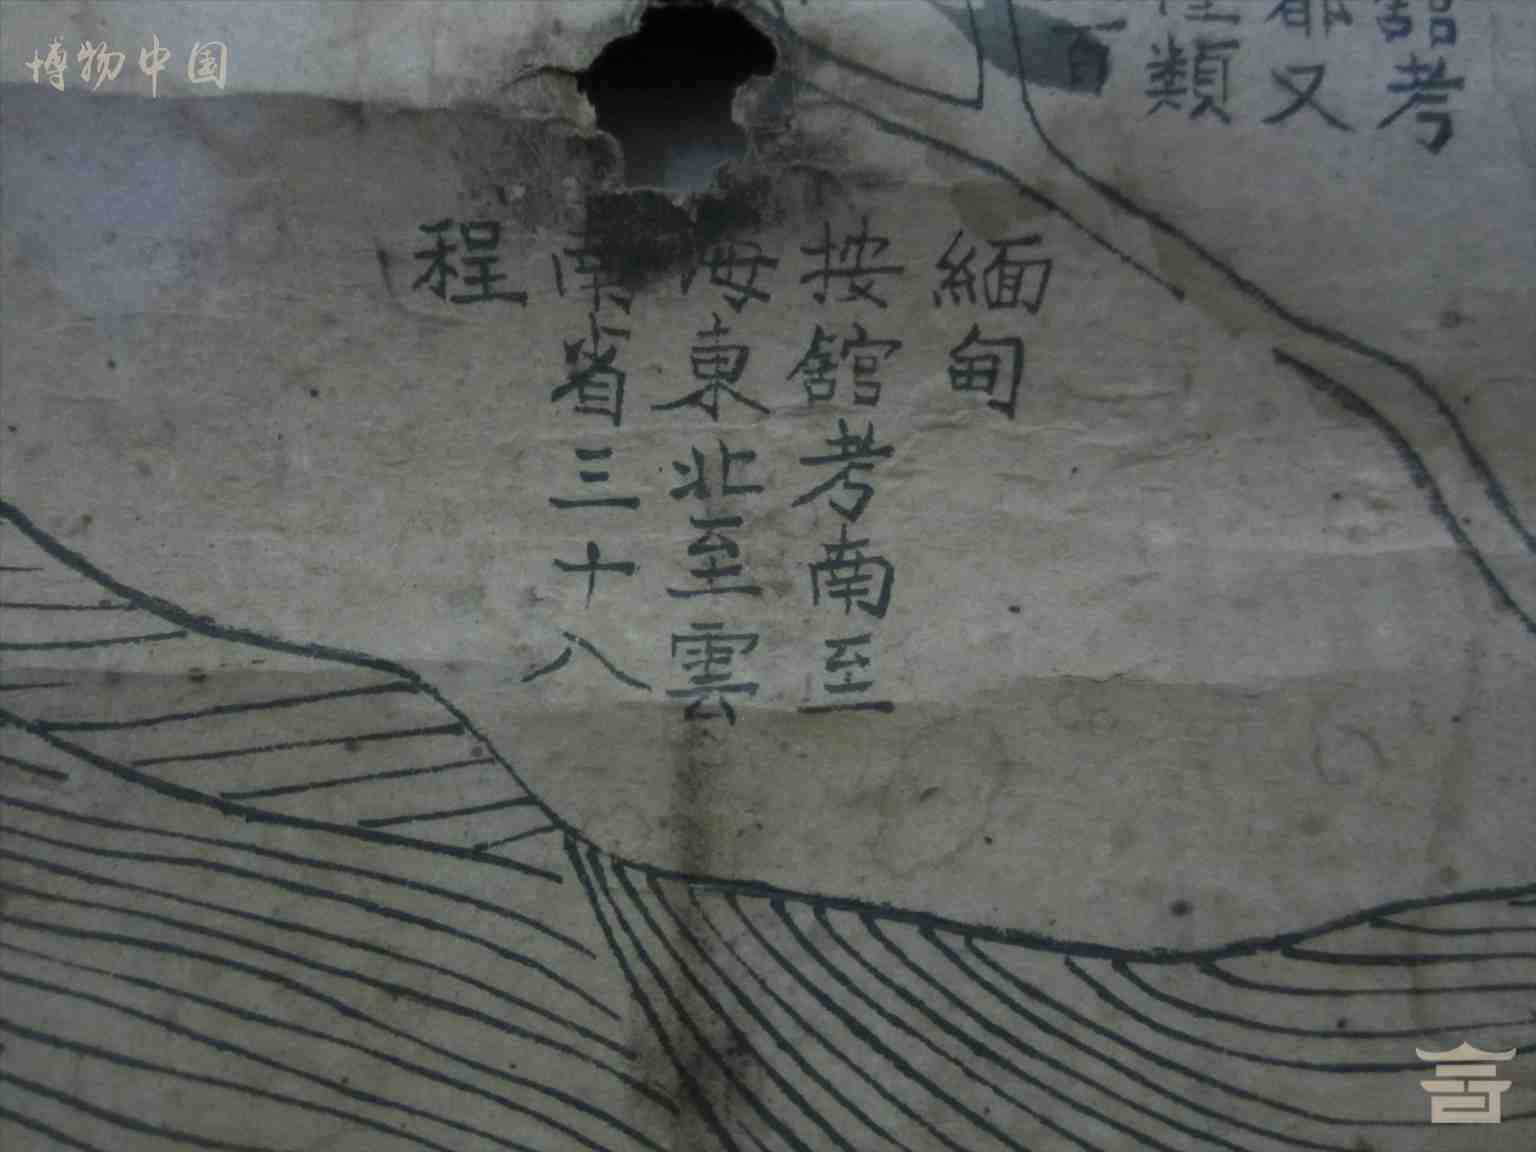 博物中国
館考
都又
類
百
緬甸
按館考南至
海東北至雲
南省三十八
程